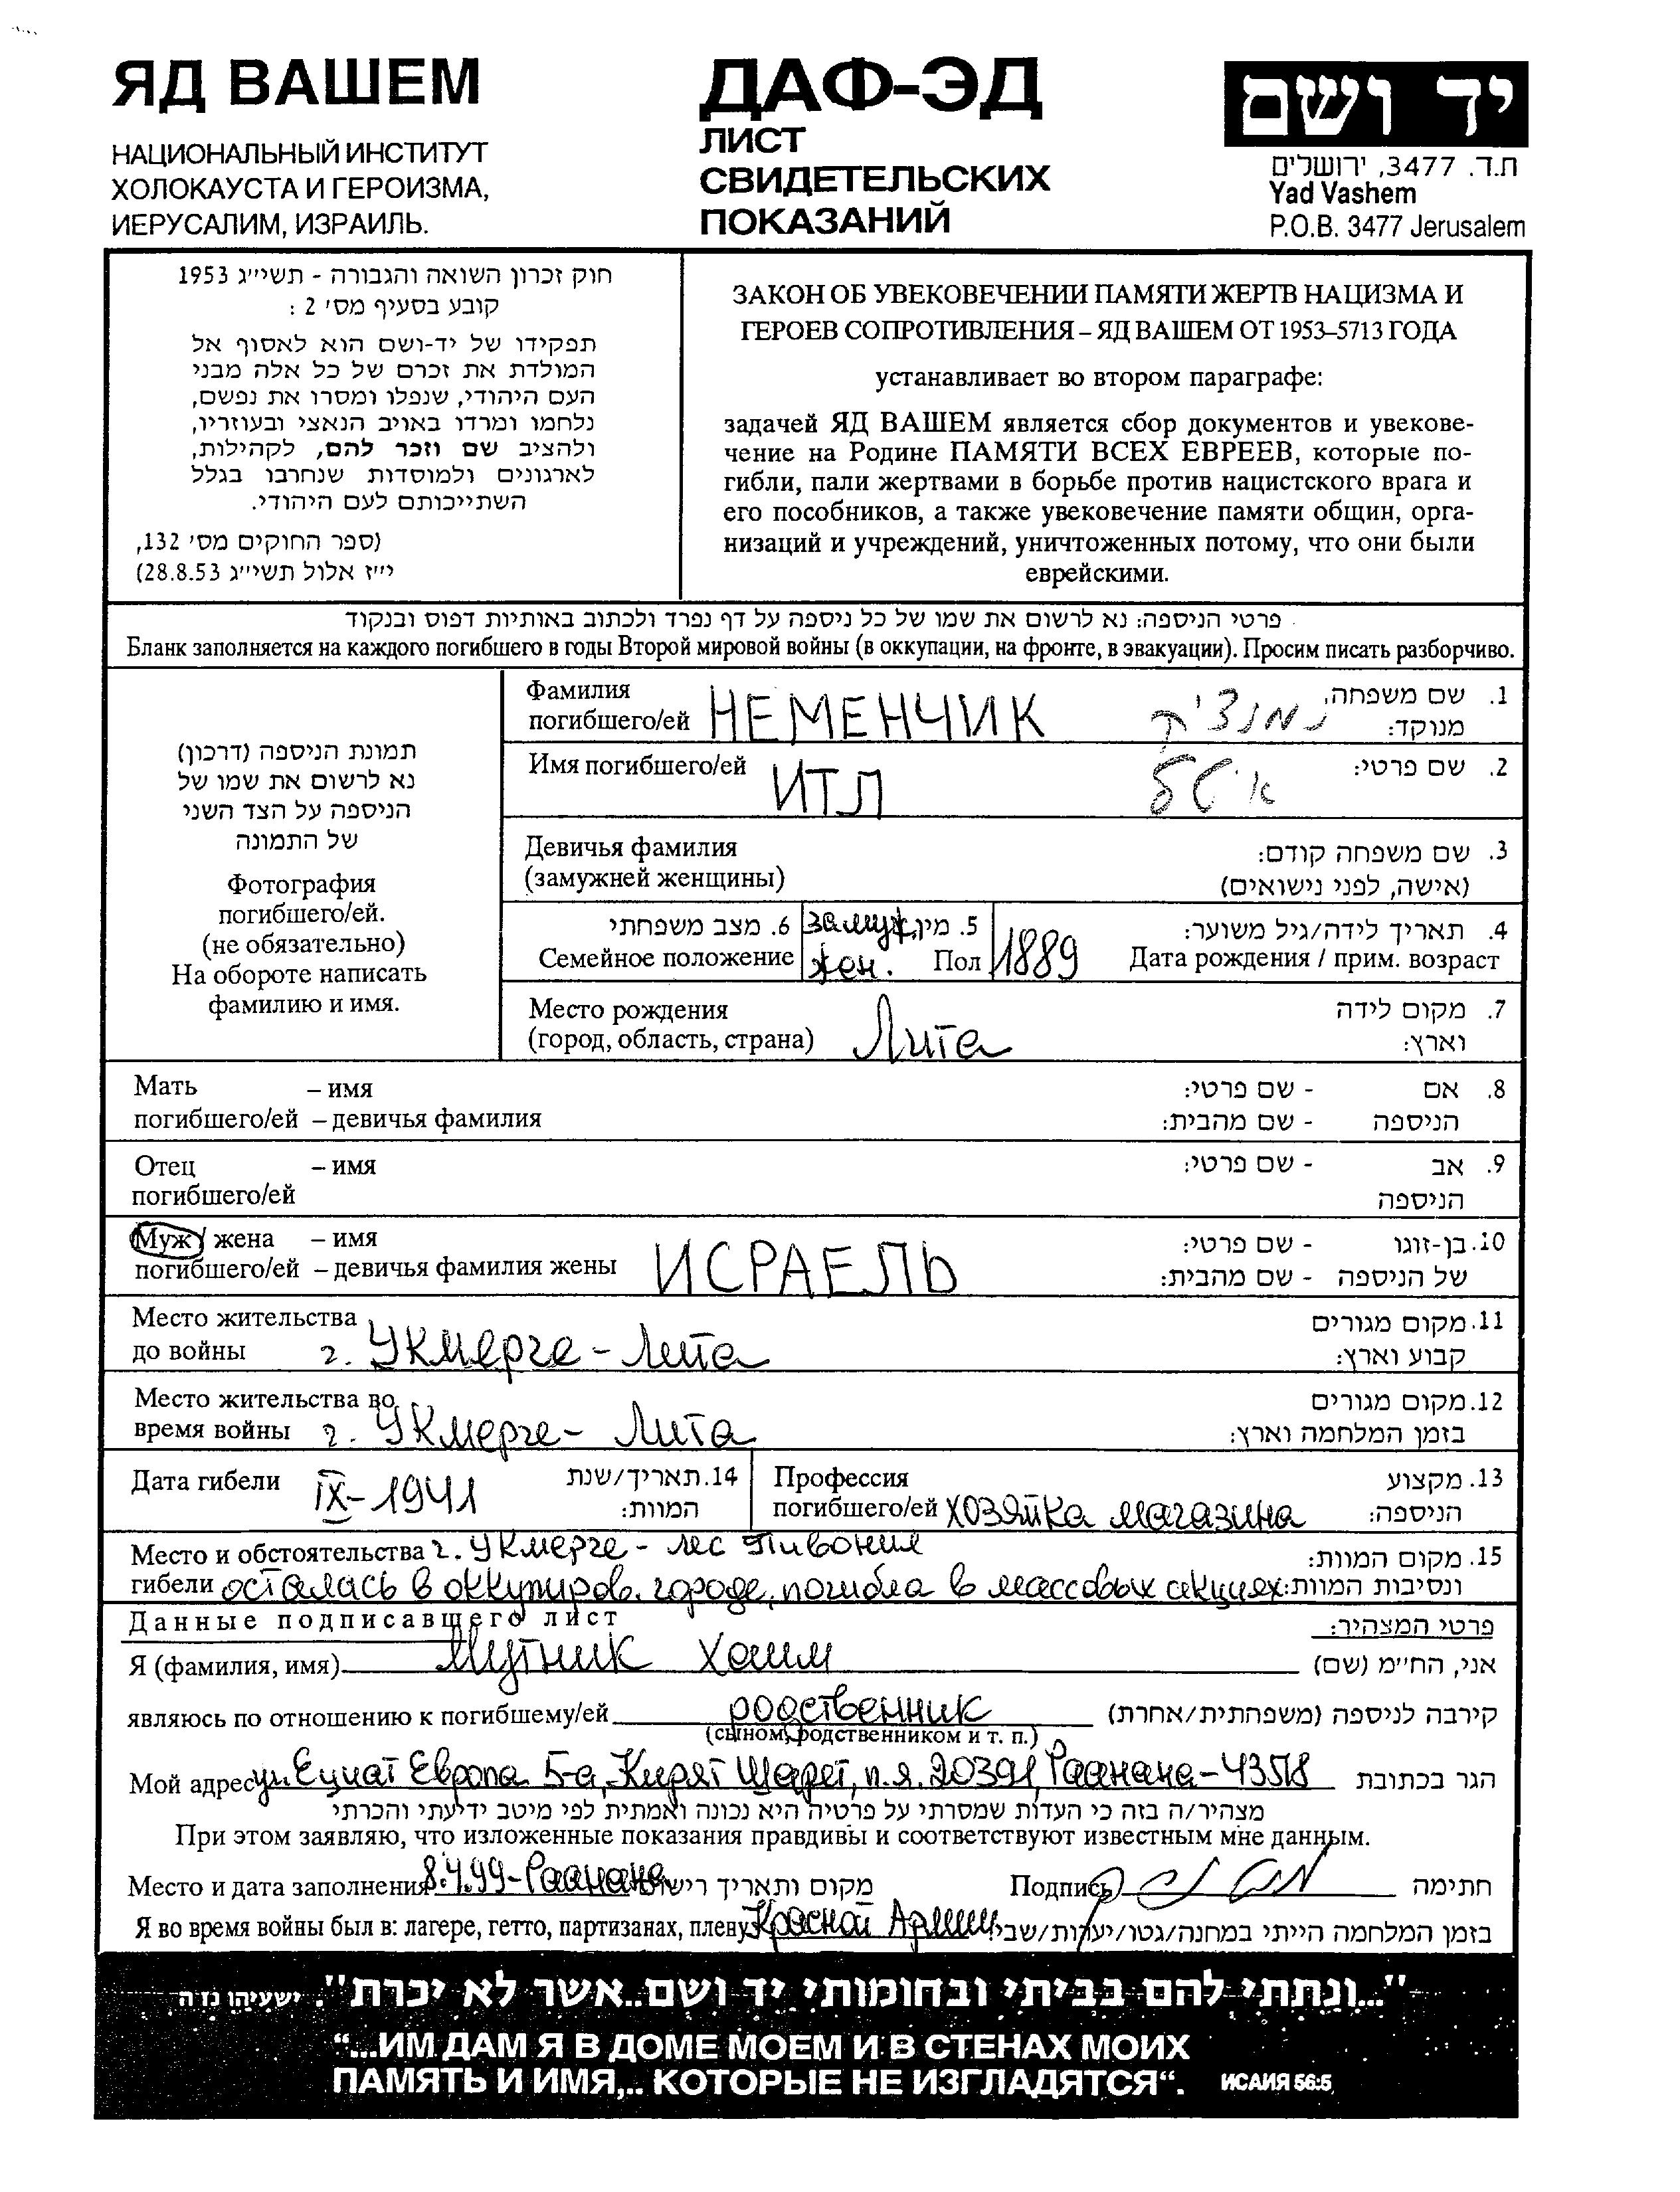 ЯД ВАШЕМ
НАЦИОНАЛЬНЫЙ ИНСТИТУТ
ХОЛОКАУСТА И ГЕРОИЗМА,
ИЕРУСАЛИМ, ИЗРАИЛЬ.
ДАФ-ЭД
ЛИСТ
СВИДЕТЕЛЬСКИХ
ПОКАЗАНИЙ
יד ושם
ת.ד. 3477, ירושלים
Yad Vashem
P.O.B. 3477 Jerusalem
חוק זכרון השואה והגבורה - תשי״ג 1953
קובע בסעיף מס׳ 2 :
תפקידו של יד-ושם הוא לאסוף אל
המולדת את זכרם של כל אלה מבני
העם היהודי, שנפלו ומסרו את נפשם,
נלחמו ומרדו באויב הנאצי ובעוזריו,
ולהציב שם וזכר להם, לקהילות,
לארגונים ולמוסדות שנחרבו בגלל
השתייכותם לעם היהודי.
(ספר החוקים מס׳ 132,
י״ז אלול תשי״ג 28.8.53)
ЗАКОН ОБ УВЕКОВЕЧЕНИИ ПАМЯТИ ЖЕРТВ НАЦИЗМА И
ГЕРОЕВ СОПРОТИВЛЕНИЯ – ЯД ВАШЕМ ОТ 1953–5713 ГОДА
устанавливает во втором параграфе:
задачей ЯД ВАШЕМ является сбор документов и увекове-
чение на Родине ПАМЯТИ ВСЕХ ЕВРЕЕВ, которые по-
гибли, пали жертвами в борьбе против нацистского врага и
его пособников, а также увековечение памяти общин, орга-
низаций и учреждений, уничтоженных потому, что они были
еврейскими.
פרטי הניספה: נא לרשום את שמו של כל ניספה על דף נפרד ולכתוב באותיות דפוס ובנקוד
Бланк заполняется на каждого погибшего в годы Второй мировой войны (в оккупации, на фронте, в эвакуации). Просим писать разборчиво.
תמונת הניספה (דרכון)
נא לרשום את שמו של
הניספה על הצד השני
של התמונה
Фотография
погибшего/ей.
(не обязательно)
На обороте написать
фамилию и имя.
Фамилия
погибшего/ей НЕМЕНЧИК נמנצ'יק
1. שם משפחה, מנוקד:
Имя погибшего/ей ИТЛ איטל 2. שם פרטי:
Девичья фамилия 3. שם משפחה קודם:
(замужней женщины) (אישה, לפני נישואים)
6. מצב משפחתי замуж. 5. מין 4. תאריך לידה/גיל משוער:
Семейное положение жен. Пол 1889 Дата рождения / прим. возраст
Место рождения 7. מקום לידה
(город, область, страна) Лита וארץ:
Мать – имя 8. אם - שם פרטי:
погибшего/ей – девичья фамилия הניספה - שם מהבית:
Отец – имя 9. אב - שם פרטי:
погибшего/ей הניספה
Муж / жена – имя 10. בן-זוגו - שם פרטי:
погибшего/ей – девичья фамилия жены ИСРАЕЛЬ של הניספה - שם מהבית:
Место жительства 11. מקום מגורים
до войны г. Укмерге - Лита קבוע וארץ:
Место жительства во 12. מקום מגורים
время войны г. Укмерге - Лита בזמן המלחמה וארץ:
Дата гибели IX-1941 14. תאריך/שנת המוות:
Профессия 13. מקצוע
погибшего/ей хозяйка магазина הניספה:
Место и обстоятельства г. Укмерге - лес Пивония 15. מקום המוות:
гибели осталась в оккупиров. городе, погибла в массовых акциях ונסיבות המוות:
Данные подписавшего лист פרטי המצהיר:
Я (фамилия, имя) Мутник Хаим אני, הח״מ (שם)
являюсь по отношению к погибшему/ей родственник קירבה לניספה (משפחתית/אחרת)
(сыном, родственником и т. п.)
Мой адрес ул. Ециат Европа 5-а, Кирят Щарет, п.я. 20391, Раанана-43518 הגר בכתובת
מצהיר/ה בזה כי העדות שמסרתי על פרטיה היא נכונה ואמתית לפי מיטב ידיעתי והכרתי
При этом заявляю, что изложенные показания правдивы и соответствуют известным мне данным.
Место и дата заполнения 8.4.99-Раанана מקום ותאריך רישום Подпись חתימה
Я во время войны был в: лагере, гетто, партизанах, плену Красной Армии בזמן המלחמה הייתי במחנה/גטו/יערות/שבי
"...ונתתי להם בביתי ובחומותי יד ושם..אשר לא יכרת". ישעיהו נו ה
“...ИМ ДАМ Я В ДОМЕ МОЕМ И В СТЕНАХ МОИХ
ПАМЯТЬ И ИМЯ,.. КОТОРЫЕ НЕ ИЗГЛАДЯТСЯ“. ИСАИЯ 56:5